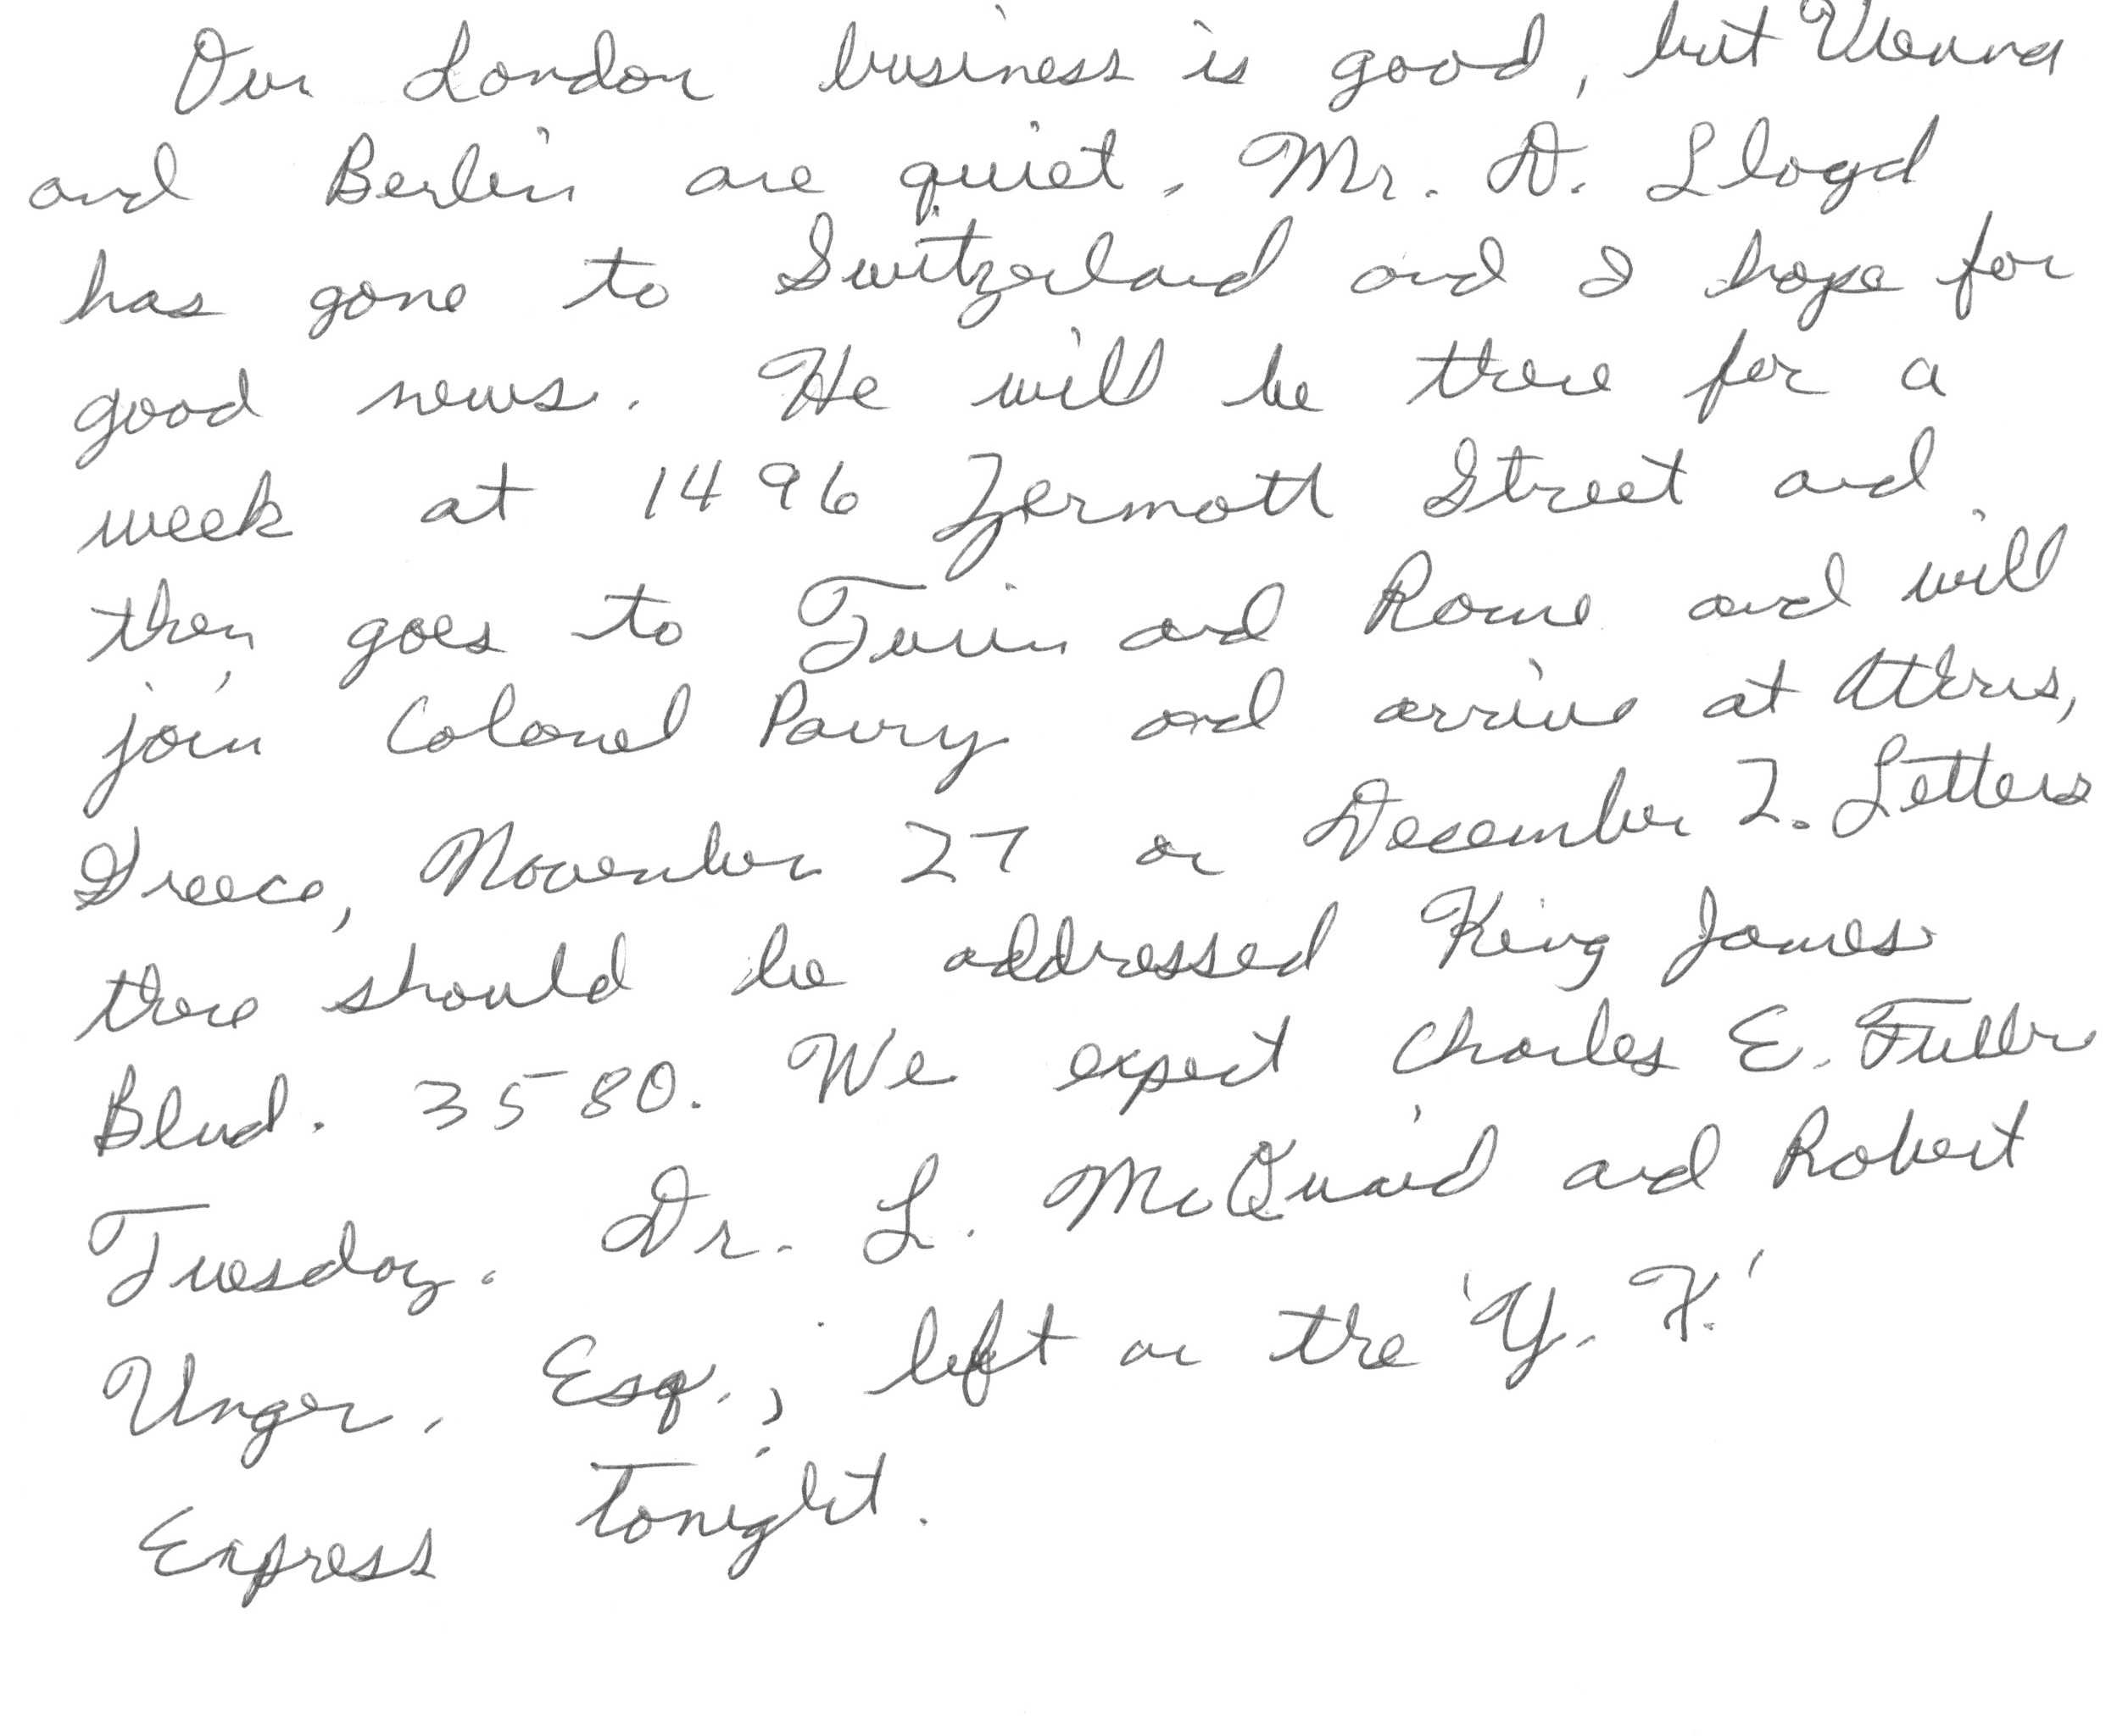 Our London business is good, but Vienna
and Berlin are quiet. Mr. D. Lloyd
has gone to Switzerland and I hope for
good news. He will be there for a
week at 1496 Zermott Street and
then goes to Turin and Rome and will
join Colonel Parry and arrive at Athens,
Greece, November 27 or December 2. Letters
there should be addressed King James
Blvd. 3580. We expect Charles E. Fuller
Tuesday. Dr. L. McQuaid and Robert
Unger, Esq., left on the 'Y. X.'
Express tonight.